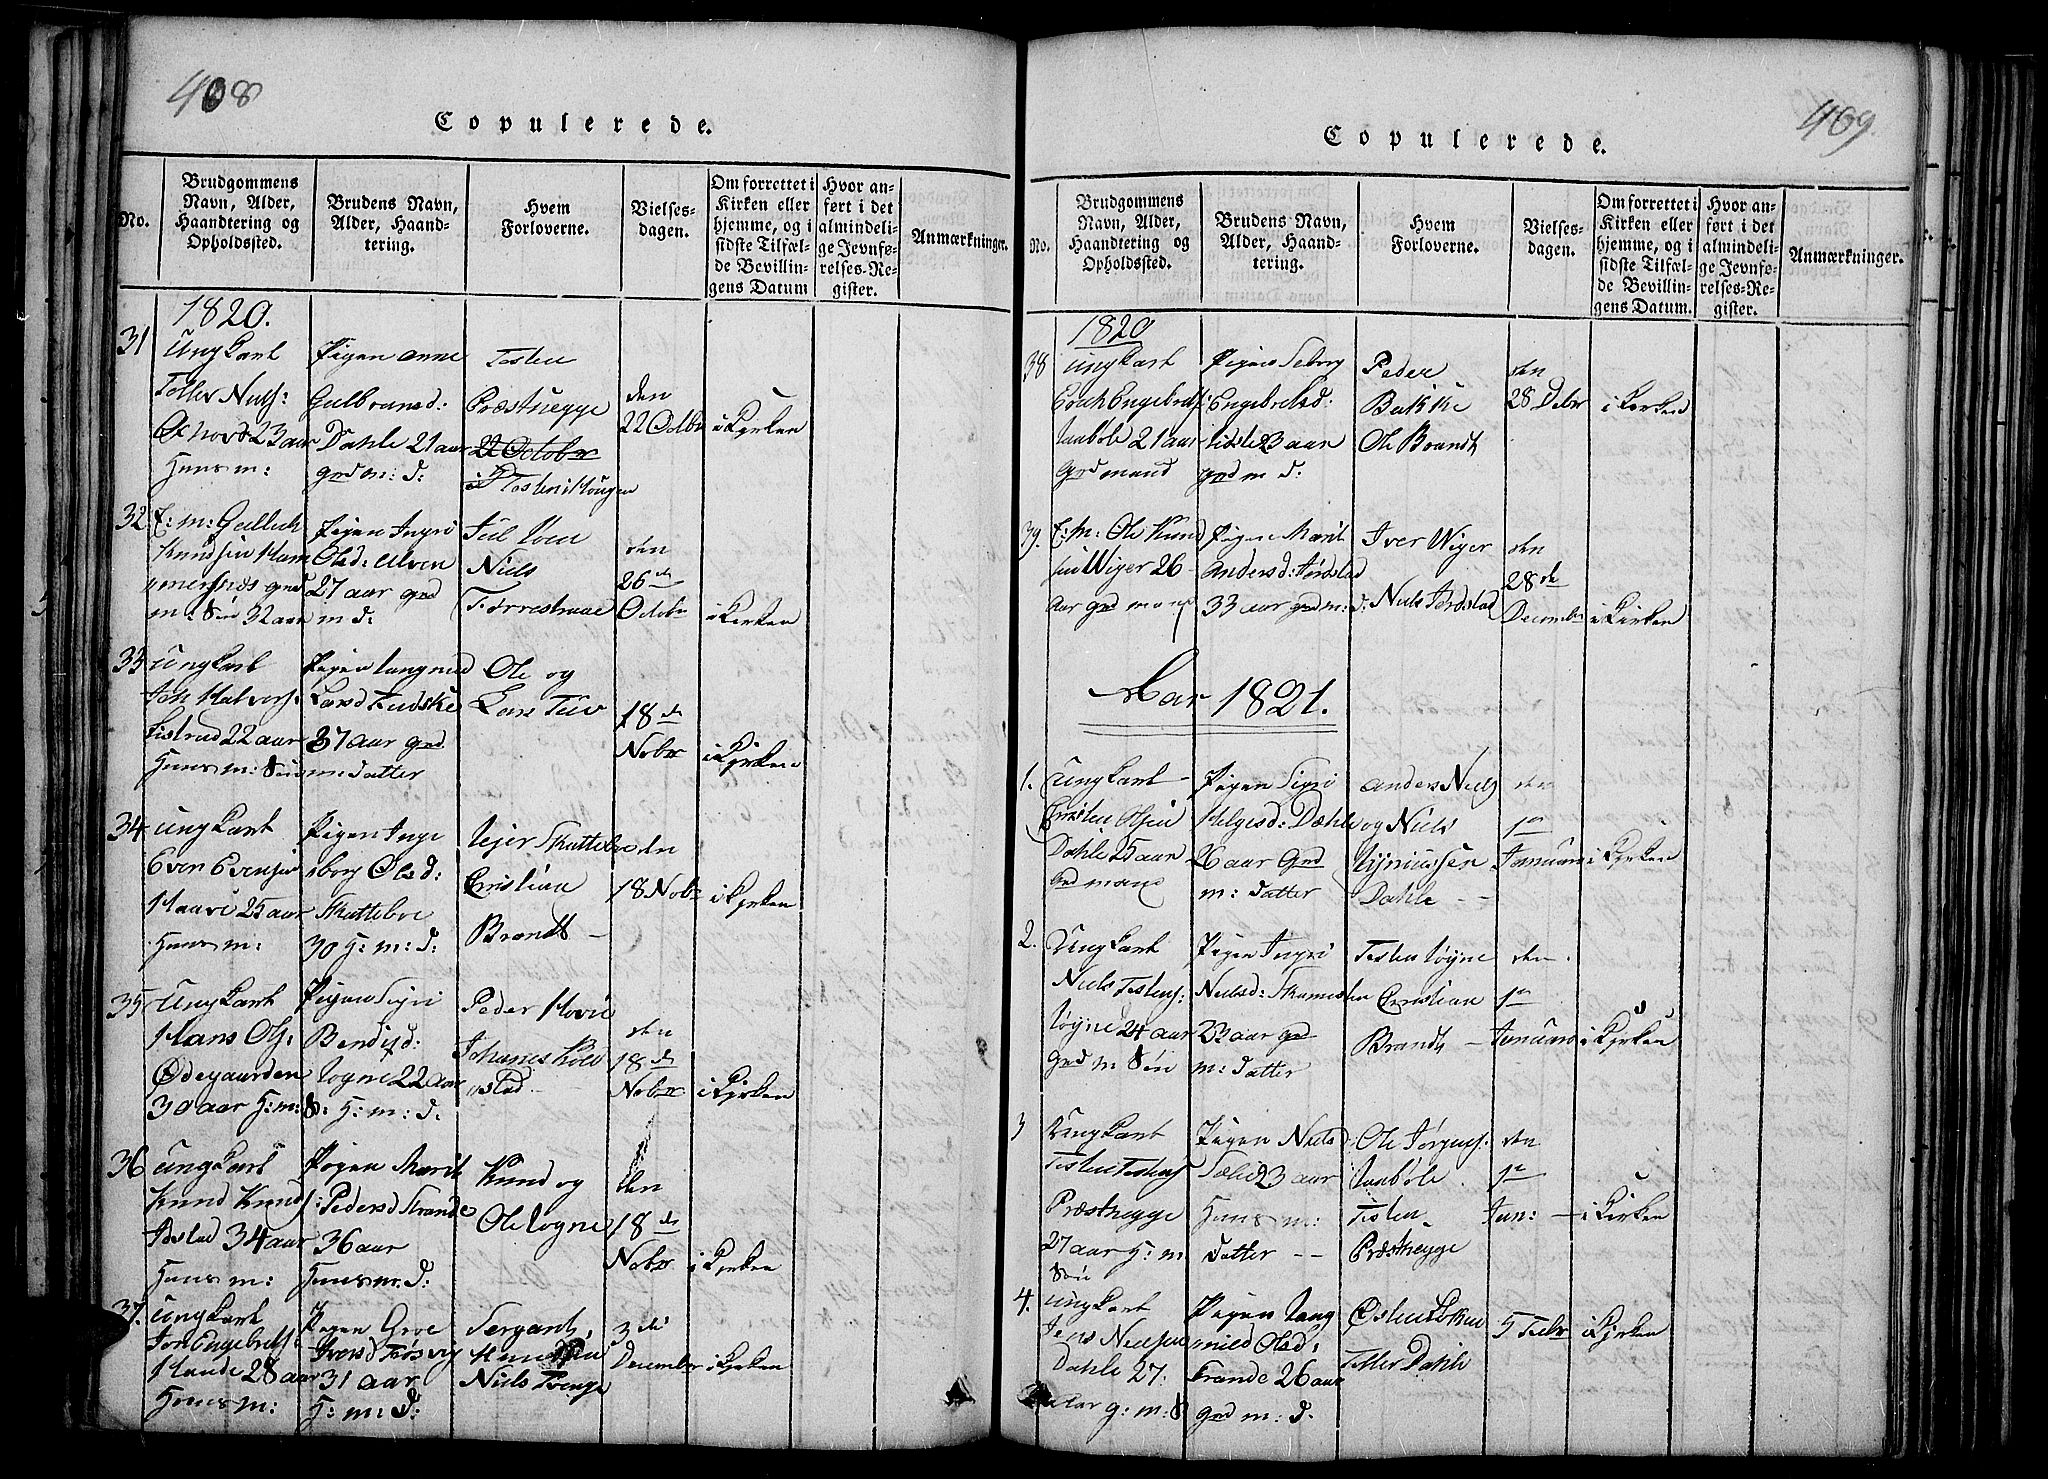 408
Copulerede.
No.
Brudgommens Navn, Alder, Haandtering og Opholdssted.
Brudens Navn, Alder, Haandtering.
Hvem Forloverne.
Vielsesdagen.
Om forrettet i Kirken eller hjemme, og i sidste Tilfælde Bevillingens Datum
Hvor anført i det almindelige Jevnførelses-Register.
Anmærkninger.
1820.
31
Ungkarl
Toller
23 aar
Huusm:
Pigen Anne
Gulbransd:
Dahle 21 aar
grdm: d:
Tosten
Præsthegge
22 October
Tosten Hougen
den
22 Octbr
i Kirken
32
E: m: Gullick
Knudsen Ham
mersnæs grd
m: Søn 32 aar
Pigen Ingri
Olsd: Ulven
27 aar grd
m d:
Niels
den
26 de
Octobr
i Kirken
33
Ungkarl
Halvors:
22 aar
Huusm: Søn
Pigen
Larsd
37 aar grd
m: Datter
Ole og
Lars
18 de
Nobr
i Kirken
34
Ungkarl
Even Evensen
Haave 25 aar
Huusm:
Pigen Inge
borg Olsd:
Skuttebøe
30 H: m: d:
Christian
Brandt
den
18 Nobr
i Kirken
35
Ungkarl
Hans Ols:
Ødegaarden
30 aar H: m: S:
Pigen Sigri
Bendixd:
Togne 22 aar
H: m: d:
Peder Hovie
Johannes
stad
den
18 de
Nobr
i Kirken
36
Ungkarl
Knud Knuds:
34 aar
Huusm:
Pigen Marit
Pedersd Strande
36 aar
Huusm. d:
Knud og
Ole Togne
den
18 de
Nobr
i Kirken
37.
Ungkarl
Engebrets:
Hande 28 aar
Huusm:
Pigen Groe
Iversd
31 aar
H: m: d:
Sergant,
Niels
3 die
December
i Kirken
409.
Copulerede.
No.
Brudgommens Navn, Alder, Haandtering og Opholdssted.
Brudens Navn, Alder, Haandtering.
Hvem Forloverne.
Vielsesdagen.
Om forrettet i Kirken eller hjemme, og i sidste Tilfælde Bevillingens Datum.
Hvor anført i det almindelige Jevnførelses-Register.
Anmærkninger.
1820
38
Ungkarl
Erich Engebrets:
21 aar
Grdmand
Pigen Seborg
Engebretsd:
23 aar
grdm d:
Peder
Bakke
Ole Brandt
den
28 Debr
i Kirken
39.
E: m: Ole Knud
sen Wiger 26
Aar grdmand
Pigen Marit
Andersd: Jørdstad
33 aar grdm: d:
Iver Wiger
Niels Jørdstad
den
28 de
December
i Kirken
Aar 1821.
1.
Ungkarl
Christen Olsen
Dahle 25 aar
Grdmand
Pigen Sigri
Helgesd: Dæhle
26 aar Grd
m: Datter
Anders Niels
og Niels
Dahle
den
1ste
Januari
i Kirken
2.
Ungkarl
Niels Tostens:
24 aar
Grd m: Søn
Pigen Ingri
Nielsd:
23 aar grd
m: Datter
Tosten
Christian
Brandt
den
1ste
Januari
i Kirken
3
Ungkarl
Tosten Tostens
Præsthegge
27 aar H: m
Søn
Pigen
23 aar
Huusm:
Datter
Ole Jørgens:
Tosten
Præsthegge
den
1ste
Jan:
i Kirken
4.
Ungkarl
Jens Nielsen
Dahle 27.
Aar g: m: S
Pigen Lang
mied Olsd:
Trande 26 aar
Grd m: d:
Østen
Toller Dahle
5 Febr
i Kirken